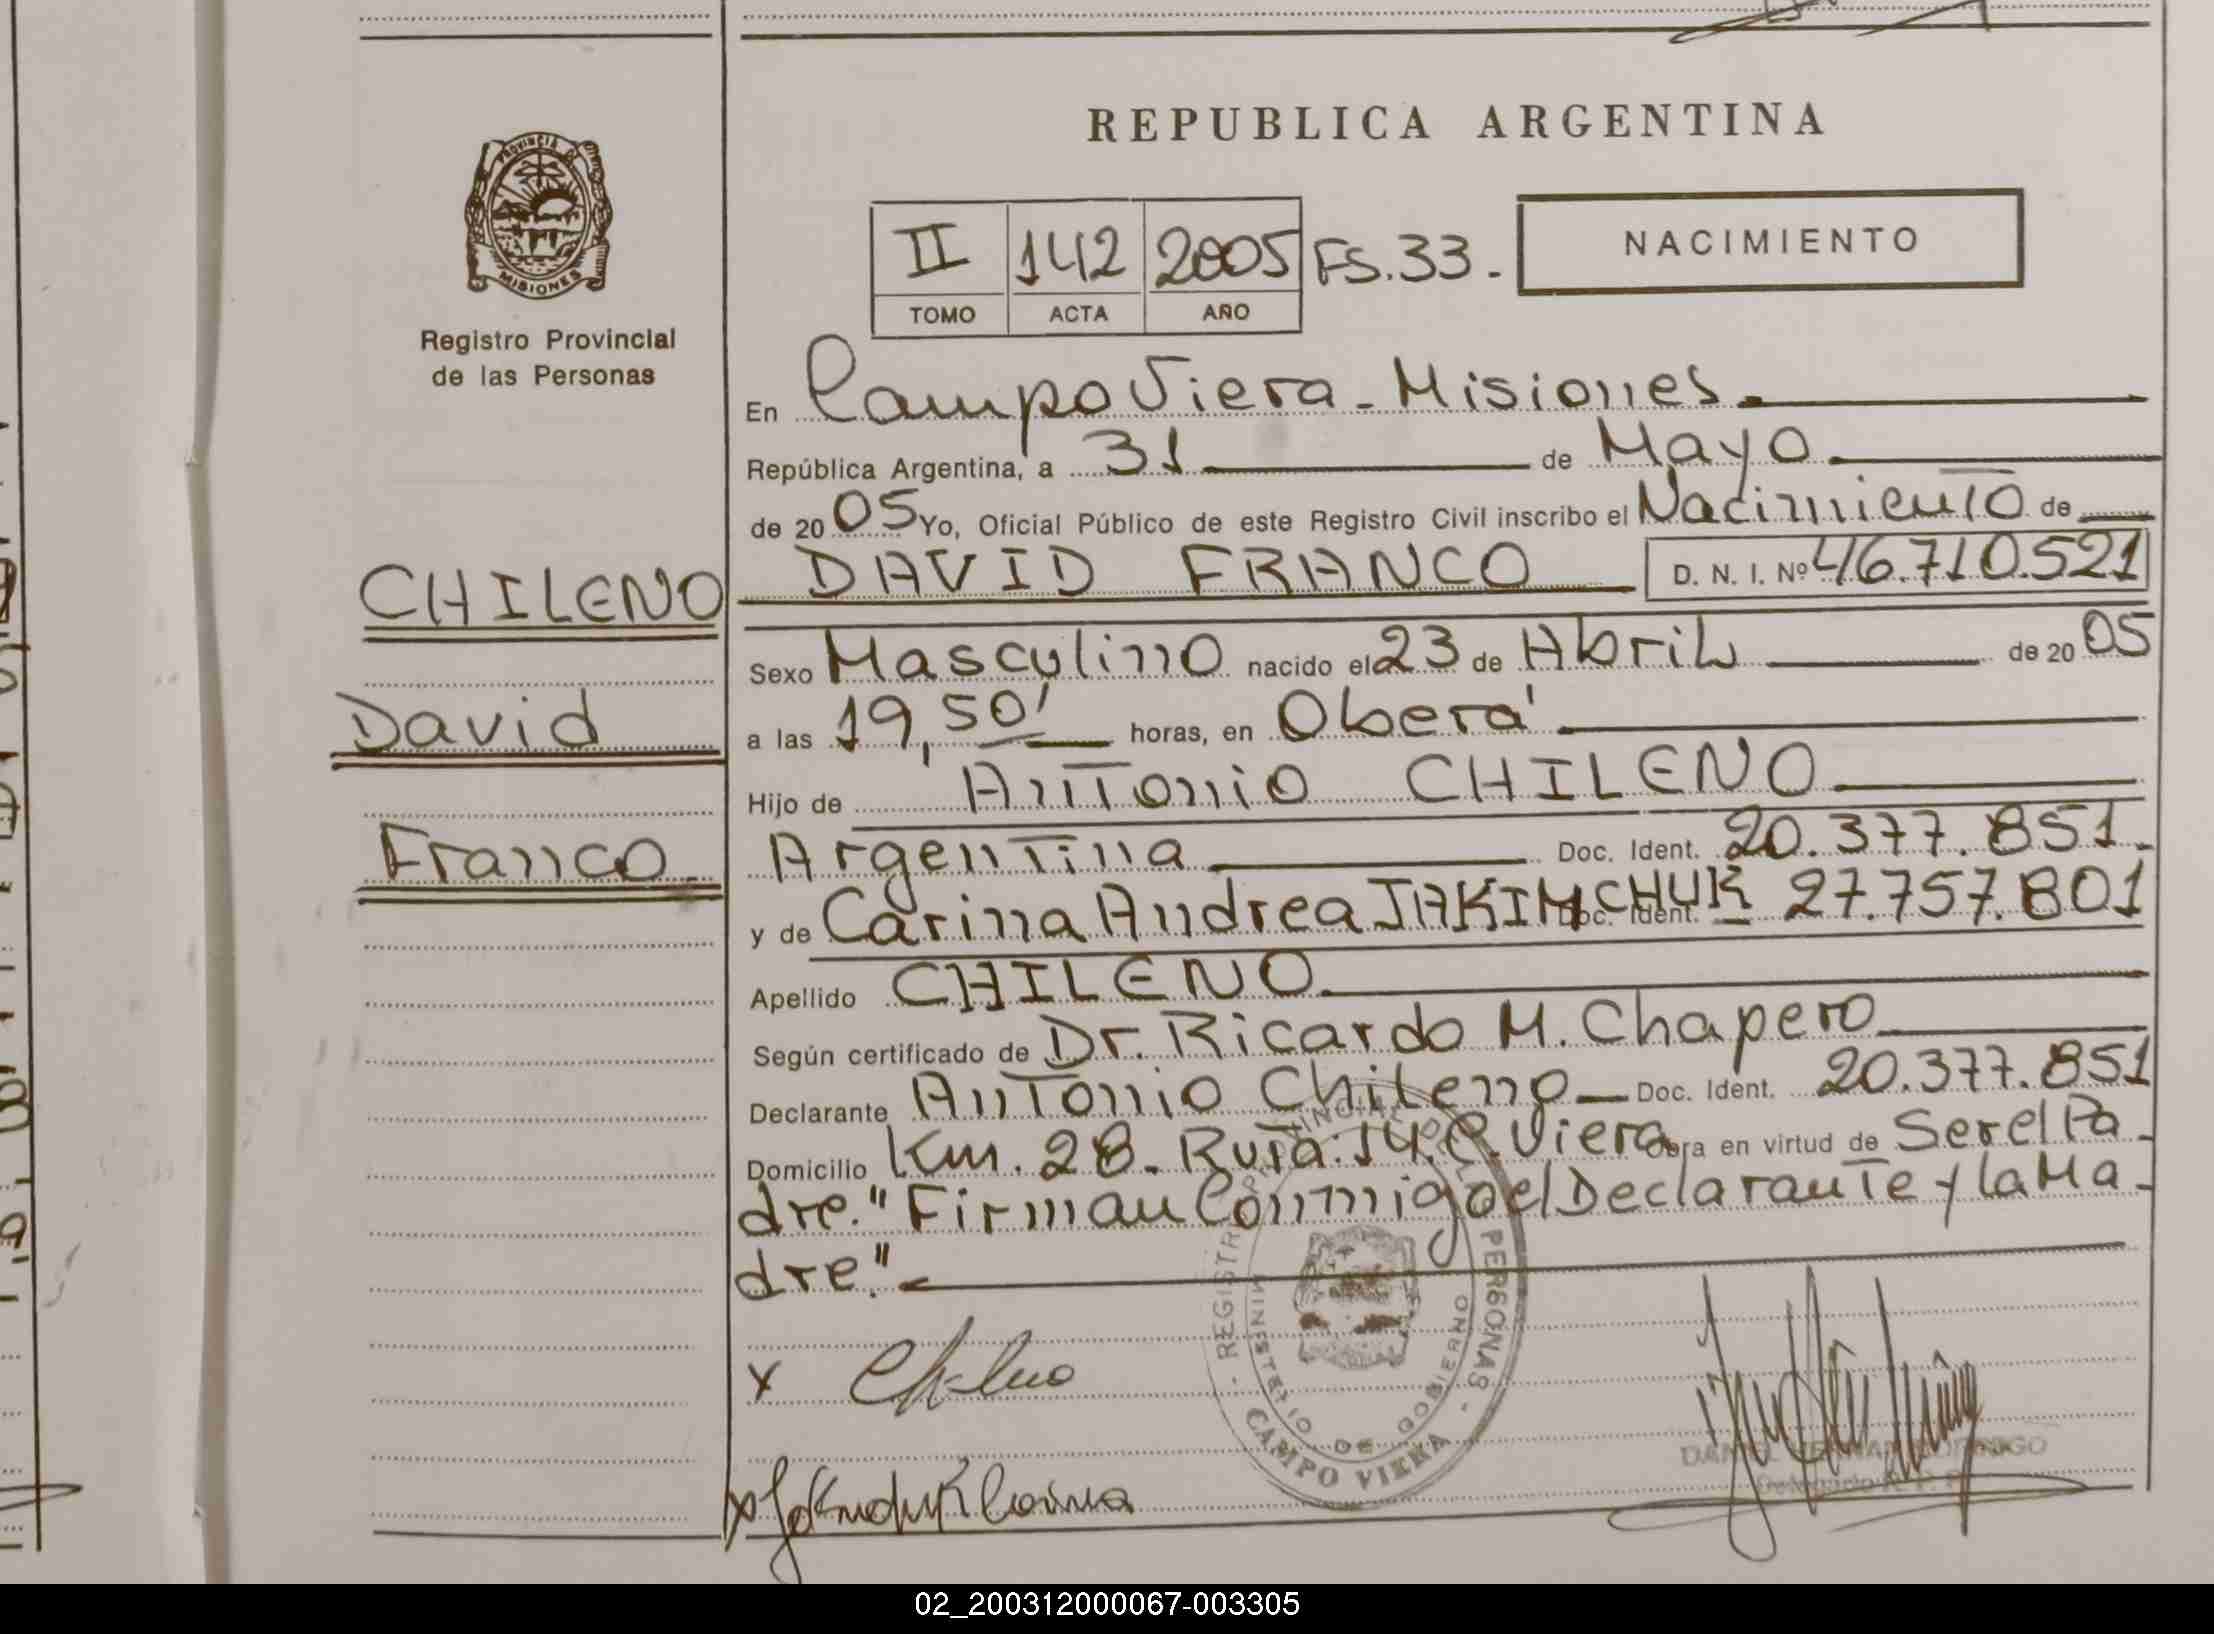 PROVINCIA DE
MISIONES
Registro Provincial
de las Personas
CHILENO
David
Franco
REPUBLICA ARGENTINA
II 142 2005 FS.33.-
TOMO ACTA AÑO
NACIMIENTO
En Campo Viera - Misiones.
República Argentina, a 31 de Mayo
de 2005 Yo, Oficial Público de este Registro Civil inscribo el Nacimiento de
DAVID FRANCO D. N. I. Nº 46.710.521
Sexo Masculino nacido el 23 de Abril de 2005
a las 19,50' horas, en Oberá
Hijo de Antonio CHILENO
Argentina Doc. Ident. 20.377.851.-
y de Carina Andrea JAKIMCHUK Doc. Ident. 27.757.801
Apellido CHILENO
Según certificado de Dr. Ricardo M. Chapero
Declarante Antonio Chileno Doc. Ident. 20.377.851
Domicilio Km. 28. Ruta: 14. C. Viera Obra en virtud de Ser el Pa-
dre." Firman Conmigo el Declarante y la Ma-
dre."
x Chileno
x Jakimchuk Carina
REGISTRO PROVINCIAL DE LAS PERSONAS
MINISTERIO DE GOBIERNO
CAMPO VIERA
Delegado R. P. P.
02_200312000067-003305